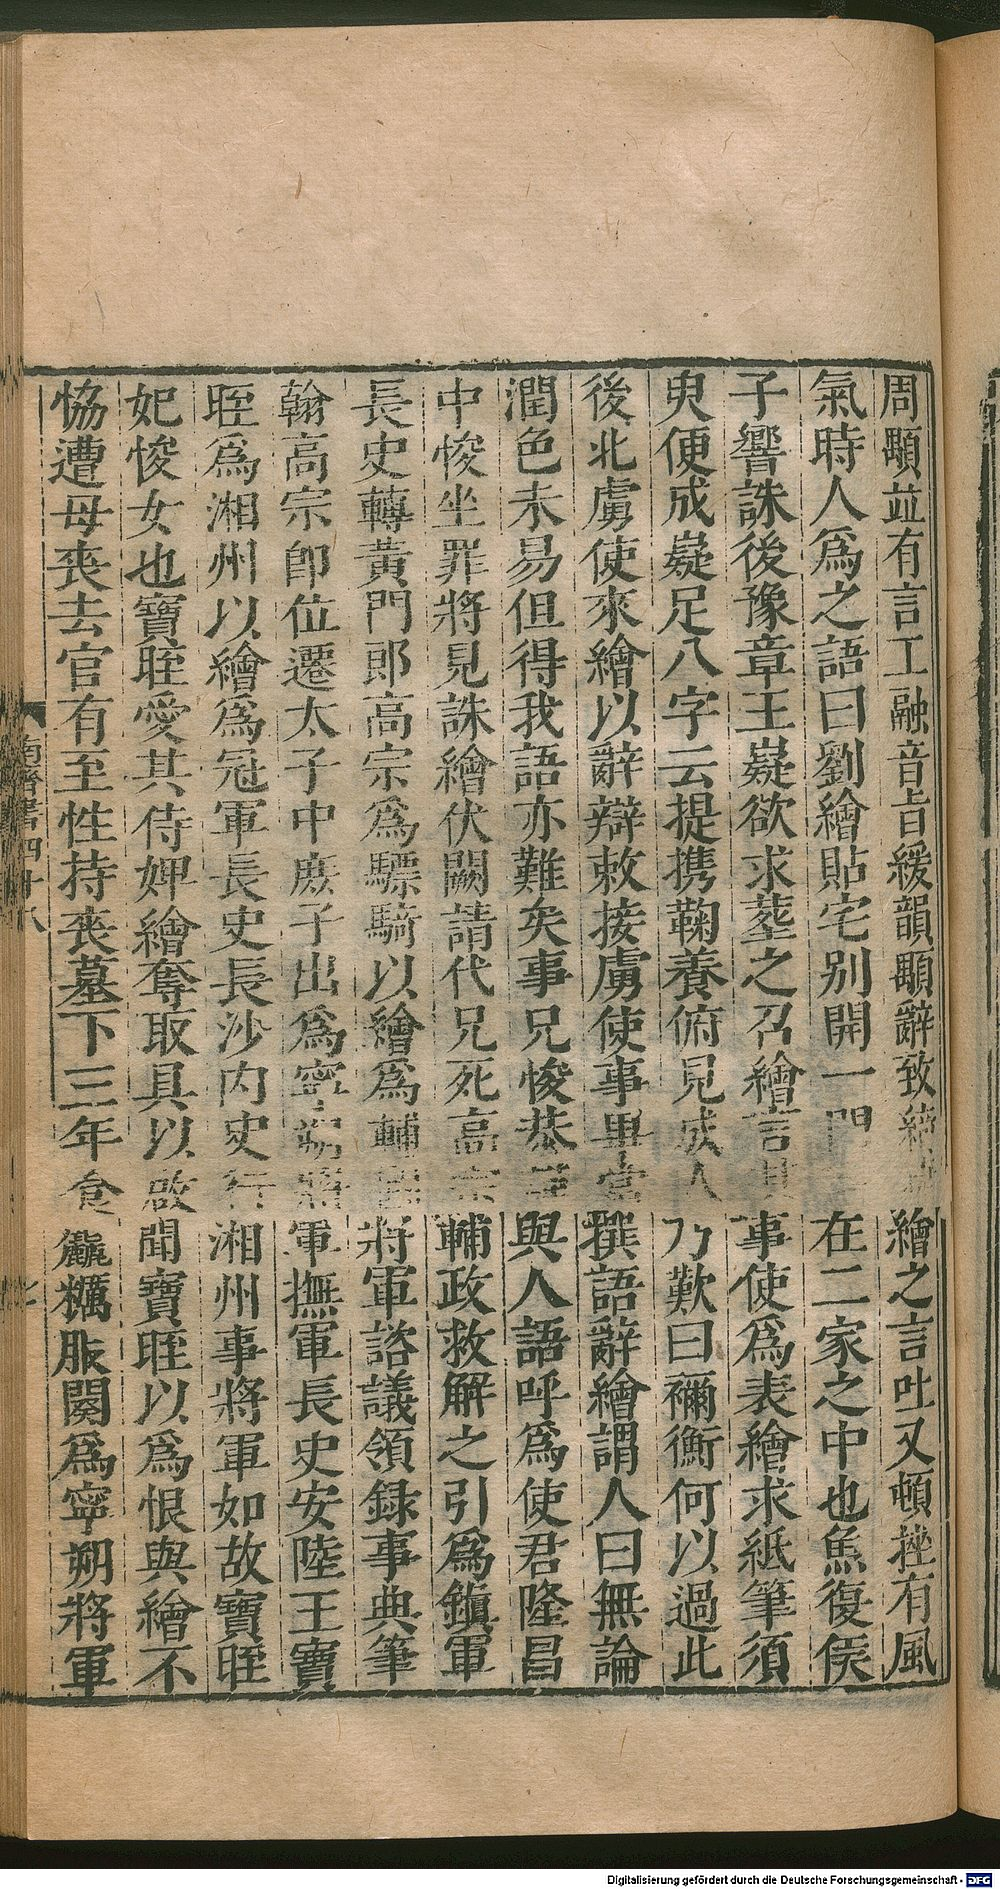 周顒並有言工融音旨緩韻顒辭致綺繪之言吐又頓挫有風
氣時人爲之語曰劉繪貼宅别開一門在二家之中也魚復侯
子響誅後豫章王嶷欲求葬之召繪言其事使爲表繪求紙筆須
臾便成嶷足八字云提携鞠養俯見成人乃歎曰禰衡何以過此
後北虜使來繪以辭辯敕接虜使事畢當撰語辭繪謂人曰無論
潤色未易但得我語亦難矣事兄悛恭與人語呼爲使君隆昌
中悛坐罪將見誅繪伏闕請代兄死高宗輔政救解之引爲鎮軍
長史轉黃門郎高宗爲驃騎以繪爲輔國將軍諮議領録事典筆
翰高宗即位遷太子中庶子出爲寧朔將軍撫軍長史安陸王寶
晊爲湘州以繪爲冠軍長史長沙内史行湘州事將軍如故寶晊
妃悛女也寶晊愛其侍婢繪奪取具以啟聞寶晊以爲恨與繪不
恊遭母喪去官有至性持喪墓下三年食麤糲服闋爲寧朔將軍
南齊書四十八
七
Digitalisierung gefördert durch die Deutsche Forschungsgemeinschaft - DFG